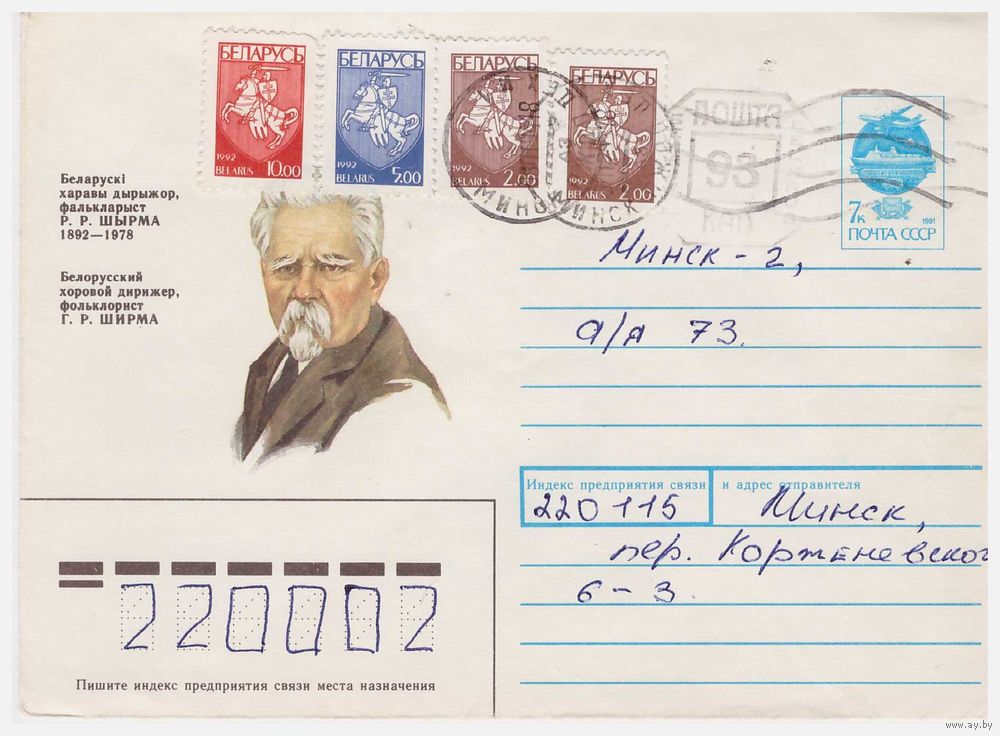 БЕЛАРУСЬ
1992
10.00
BELARUS
БЕЛАРУСЬ
1992
5.00
BELARUS
БЕЛАРУСЬ
1992
2.00
BELARUS
БЕЛАРУСЬ
1992
2.00
BELARUS
МИНСК
ПОШТА
93
7к
1991
ПОЧТА СССР
Беларускі
харавы дырыжор,
фалькларыст
Р. Р. ШЫРМА
1892—1978
Белорусский
хоровой дирижер,
фольклорист
Г. Р. ШИРМА
Минск - 2,
а/я 73.
Индекс предприятия связи и адрес отправителя
220115 Минск,
пер. Корженевского
6 - 3.
220002
Пишите индекс предприятия связи места назначения
www.ay.by